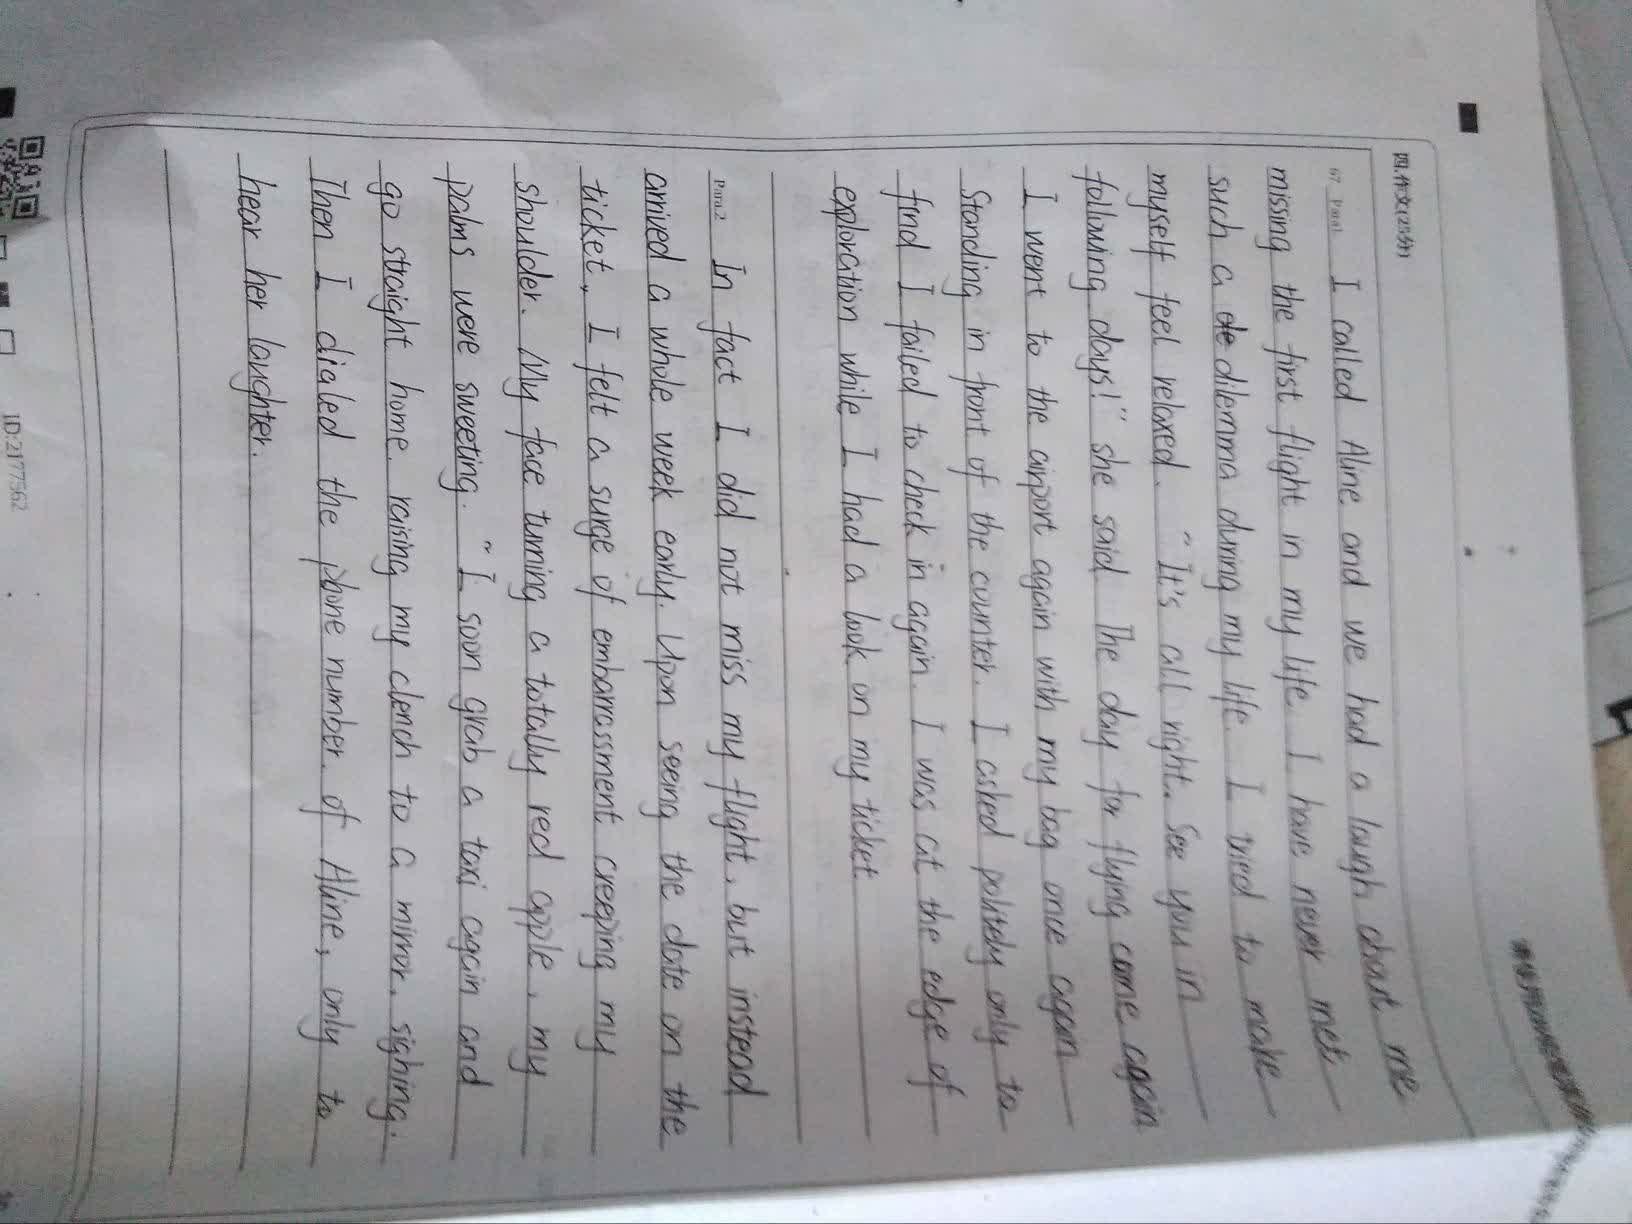 四.作文(25分)
67 Para1 I called Aline and we had a laugh about me
missing the first flight in my life. I have never met
such a de dilemma during my life. I tried to make
myself feel relaxed. "It's all right. See you in
following days!" she said The day for flying come again
I went to the airport again with my bag once again
Standing in front of the counter. I asked politely only to
find I failed to check in again. I was at the edge of
exploration while I had a look on my ticket
Para2 In fact I did not miss my flight, but instead
arrived a whole week early. Upon seeing the date on the
ticket, I felt a surge of embarrassment creeping my
shoulder. My face turning a totally red apple, my
palms were sweeting. "I soon grab a taxi again and
go straight home. raising my clench to a mirror, sighing.
Then I dialed the phone number of Aline, only to
hear her laughter.
ID:2177562